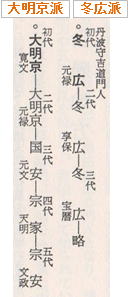 大明京派 冬広派
丹波守吉道門人
初代 二代 三代
冬広―冬広―冬広―略
元禄 享保 宝暦
初代 二代 三代 四代 五代
大明京―大明京―国安―宗家―宗安
寛文 元禄 元文 天明 文政